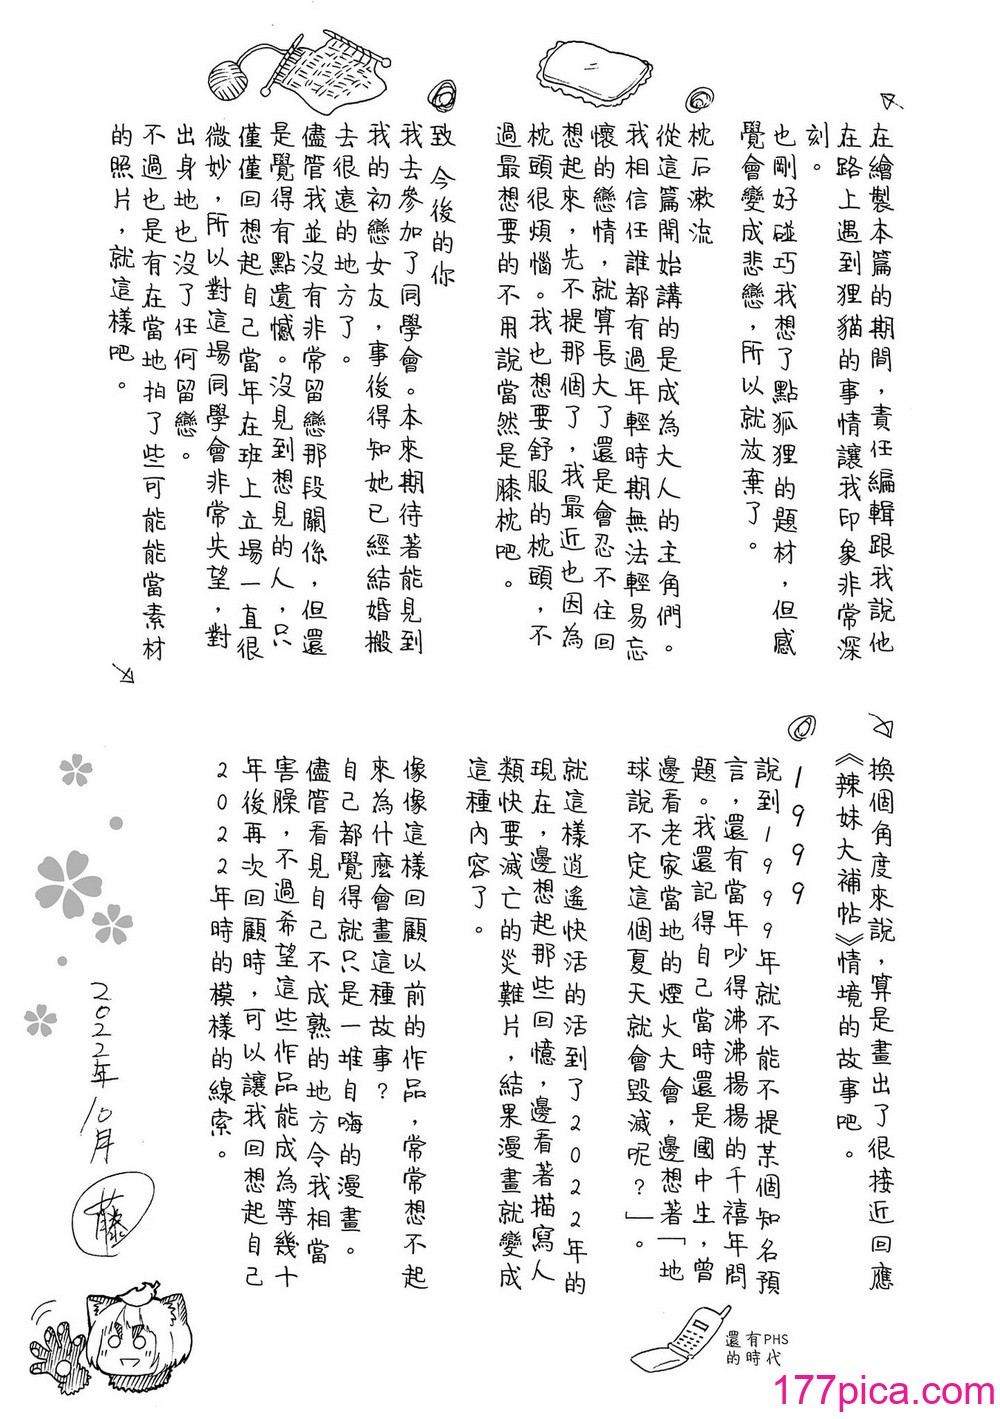 在繪製本篇的期間，責任編輯跟我說他
在路上遇到狸貓的事情讓我印象非常深
刻。
也剛好碰巧我想了點狐狸的題材，但感
覺會變成悲戀，所以就放棄了。
枕石漱流
從這篇開始講的是成為大人的主角們。
我相信任誰都有過年輕時期無法輕易忘
懷的戀情，就算長大了還是會忍不住回
想起來，先不提那個了，我最近也因為
枕頭很煩惱。我也想要舒服的枕頭，不
過最想要的不用說當然是膝枕吧。
致 今後的你
我去參加了同學會。本來期待著能見到
我的初戀女友，事後得知她已經結婚搬
去很遠的地方了。
儘管我並沒有非常留戀那段關係，但還
是覺得有點遺憾。沒見到想見的人，只
僅僅回想起自己當年在班上立場一直很
微妙，所以對這場同學會非常失望，對
出身地也沒了任何留戀。
不過也是有在當地拍了些可能能當素材
的照片，就這樣吧。
換個角度來說，算是畫出了很接近回應
《辣妹大補帖》情境的故事吧。
1999
說到1999年就不能不提某個知名預
言，還有當年吵得沸沸揚揚的千禧年問
題。我還記得自己當時還是國中生，曾
邊看老家當地的煙火大會，邊想著「地
球說不定這個夏天就會毀滅呢？」。
就這樣逍遙快活的活到了2022年的
現在，邊想起那些回憶，邊看著描寫人
類快要滅亡的災難片，結果漫畫就變成
這種內容了。
像像這樣回顧以前的作品，常常想不起
來為什麼會畫這種故事？
自己都覺得就只是一堆自嗨的漫畫。
儘管看見自己不成熟的地方令我相當
害臊，不過希望這些作品能成為等幾十
年後再次回顧時，可以讓我回想起自己
2022年時的模樣的線索。
還有PHS
的時代
2022年10月
藤
177pica.com